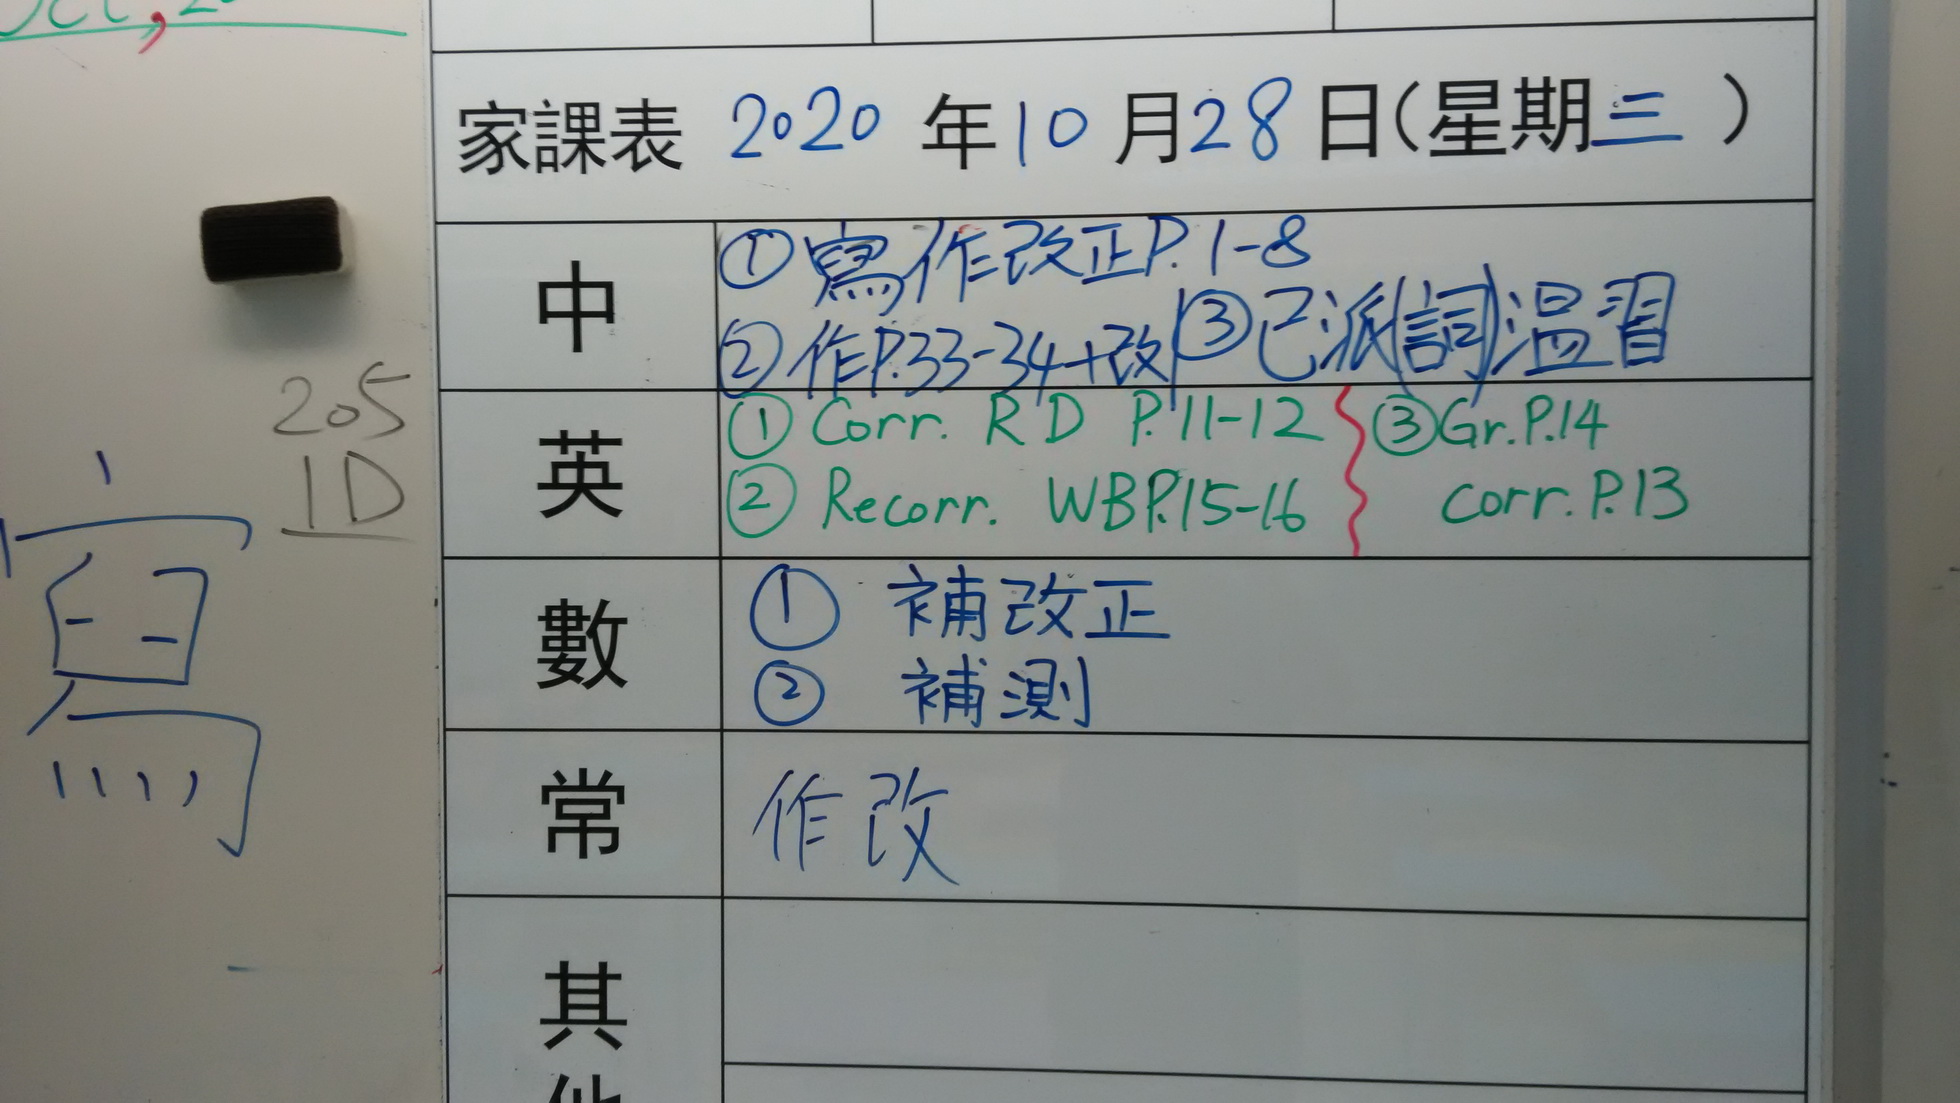 家課表 2020 年 10 月 28 日(星期三)
中
①寫作改正P.1-8
②作P.33-34+改 ③已派(詞)溫習
英
① Corr. RD P.11-12 ③Gr.P.14
② Recorr. WBP.15-16 corr.P.13
數
① 補改正
② 補測
常
作改
其他
205
1D
寫